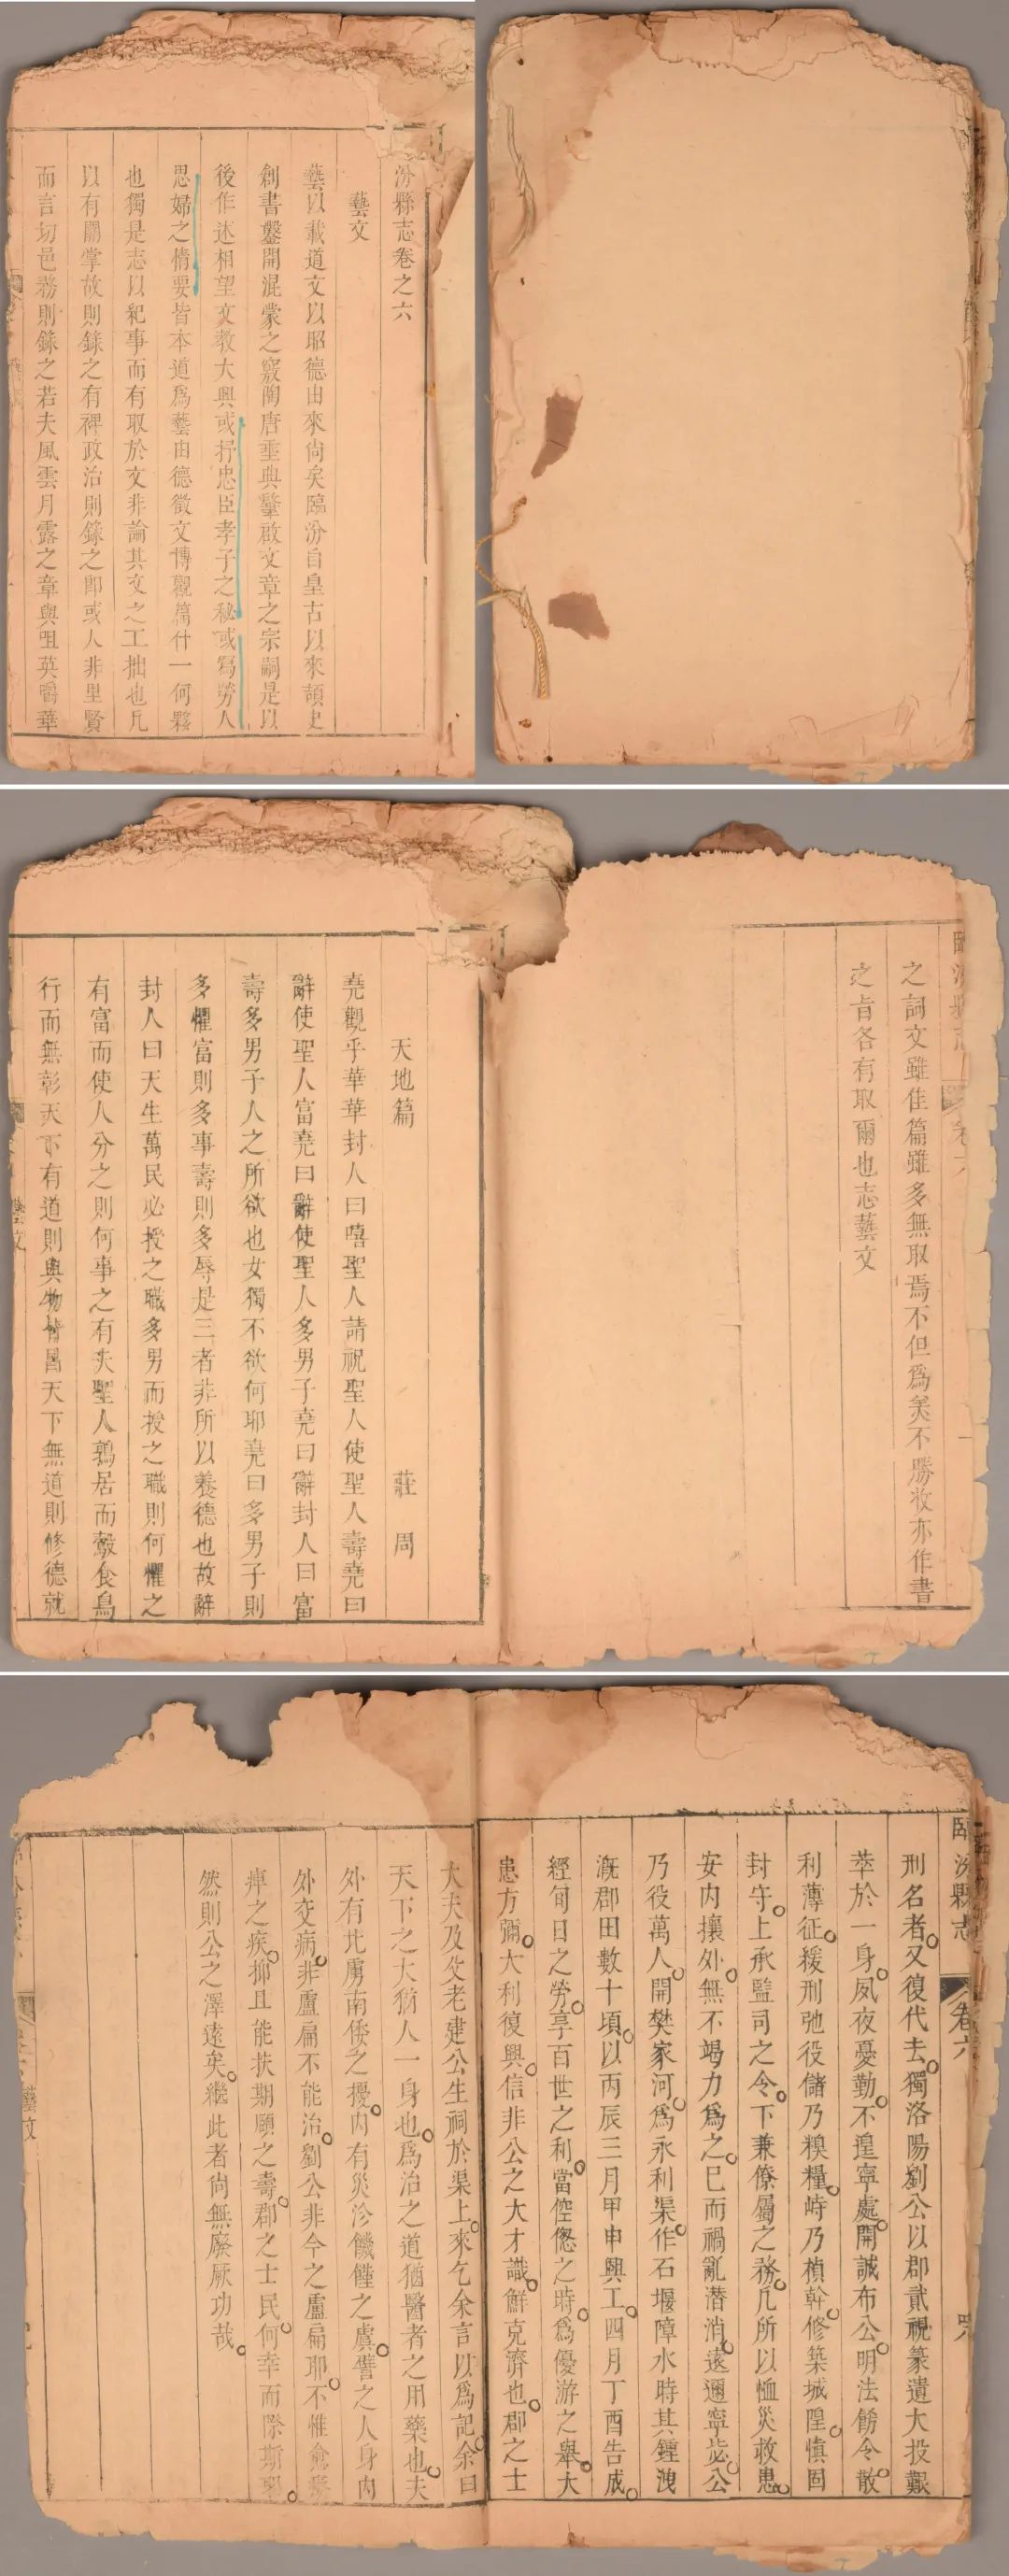 汾縣志卷之六
藝文
藝以載道文以昭德由來尚矣臨汾自皇古以來頡史
創書鑿開混蒙之竅陶唐垂典肇啟文章之宗嗣是以
後作述相望文教大興或抒忠臣孝子之秘或寫勞人
思婦之情要皆本道爲藝由德徵文博觀篇什一何夥
也獨是志以紀事而有取於文非論其文之工拙也凡
以有關掌故則錄之有裨政治則錄之卽或人非里賢
而言切邑務則錄之若夫風雲月露之章與咀英嚼華
臨汾縣志
卷六
之詞文雖佳篇雖多無取焉不但爲美不勝收亦作書
之旨各有取爾也志藝文
天地篇 莊周
堯觀乎華華封人曰嘻聖人請祝聖人使聖人壽堯曰
辭使聖人富堯曰辭使聖人多男子堯曰辭封人曰富
壽多男子人之所欲也女獨不欲何耶堯曰多男子則
多懼富則多事壽則多辱是三者非所以養德也故辭
封人曰天生萬民必授之職多男而授之職則何懼之
有富而使人分之則何事之有夫聖人鶉居而鷇食鳥
行而無彰天下有道則與物皆昌天下無道則修德就
藝文
臨汾縣志
卷六
刑名者又復代去獨洛陽劉公以郡貳視篆遺大投艱
萃於一身夙夜憂勤不遑寧處開誠布公明法飭令散
利薄征緩刑弛役儲乃糗糧峙乃楨幹修築城隍慎固
封守上承監司之令下兼僚屬之務凡所以恤災救患
安内攘外無不竭力爲之巳而禍亂潛消遠邇寧謐公
乃役萬人開樊家河爲永利渠作石堰障水時其鍾洩
漑郡田數十頃以丙辰三月甲申興工四月丁酉告成
經旬日之勞享百世之利當倥傯之時爲優游之舉大
患方彌大利復興信非公之大才識鮮克濟也郡之士
大夫及父老建公生祠於渠上來乞余言以爲記余曰
天下之大猶人一身也爲治之道猶醫者之用藥也夫
外有北虜南倭之擾内有災沴饑饉之虞譬之人身内
外交病非盧扁不能治劉公非今之盧扁耶不惟愈
瘁之疾抑且能扶期頤之壽郡之士民何幸而際斯
然則公之澤遠矣繼此者尚無廢厥功哉
藝文